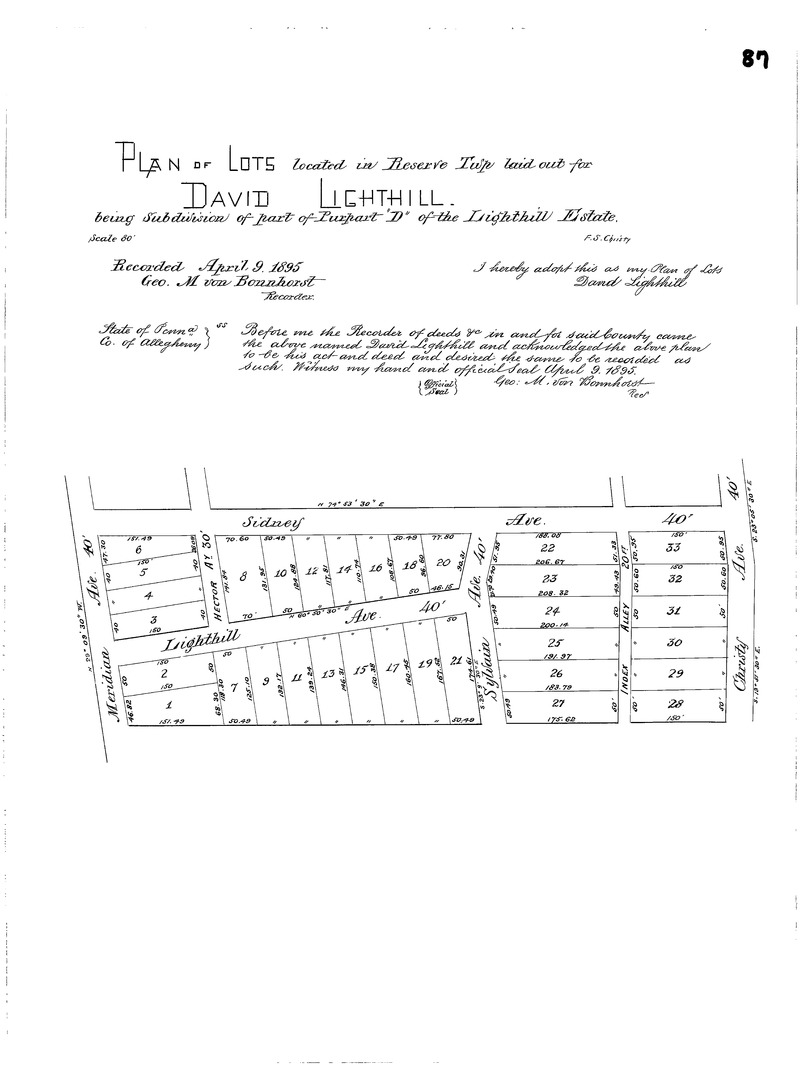 87
PLAN OF LOTS located in Reserve Twp laid out for
DAVID LIGHTHILL.
being Subdivision of part of Purpart "D" of the Lighthill Estate.
Scale 80'
F.S. Christy
Recorded April 9. 1895
Geo. M von Bonnhorst
Recorder.
I hereby adopt this as my Plan of Lots
David Lighthill
State of Penna } ss
Co. of Allegheny }
Before me the Recorder of deeds &c in and for said County came
the above named David Lighthill and acknowledged the above plan
to be his act and deed and desired the same to be recorded as
such. Witness my hand and official Seal April 9. 1895.
{Official Seal}
Geo: M. von Bonnhorst
Rec'
N 74° 53' 30" E
Sidney Ave. 40'
Meridian Ave. 40'
HECTOR AY 30'
Lighthill Ave. 40'
N 80° 50' 30" E
Sylvain Ave. 40'
INDEX ALLEY 20 FT
Christy Ave. 40'
151.49
47.30
6
150
40
5
40
4
3
40
40
150
150
50
2
50
150
1
46.82
68.30
151.49
70.60 50.49 " " " 50.49 77.80
141.84 8 131.95 10 124.88 12 117.81 14 110.74 16 103.67 18 96.60 20
70' 50 50 46.15
50 " " " " " " 50
118.30 7 125.10 9 132.17 11 139.24 13 146.31 15 153.38 17 160.45 19 167.52 21 174.61
50.49 " " " " " " 50.49
188.08
51.95
22
51.33
206.67
23
49.43
208.32
50.49
24
50
200.14
25
191.97
26
183.79
50.49
27
50'
175.62
150'
50.95
33
50.95
150
50.60
32
50.60
50
31
50'
"
30
"
"
29
"
50'
28
50'
150'